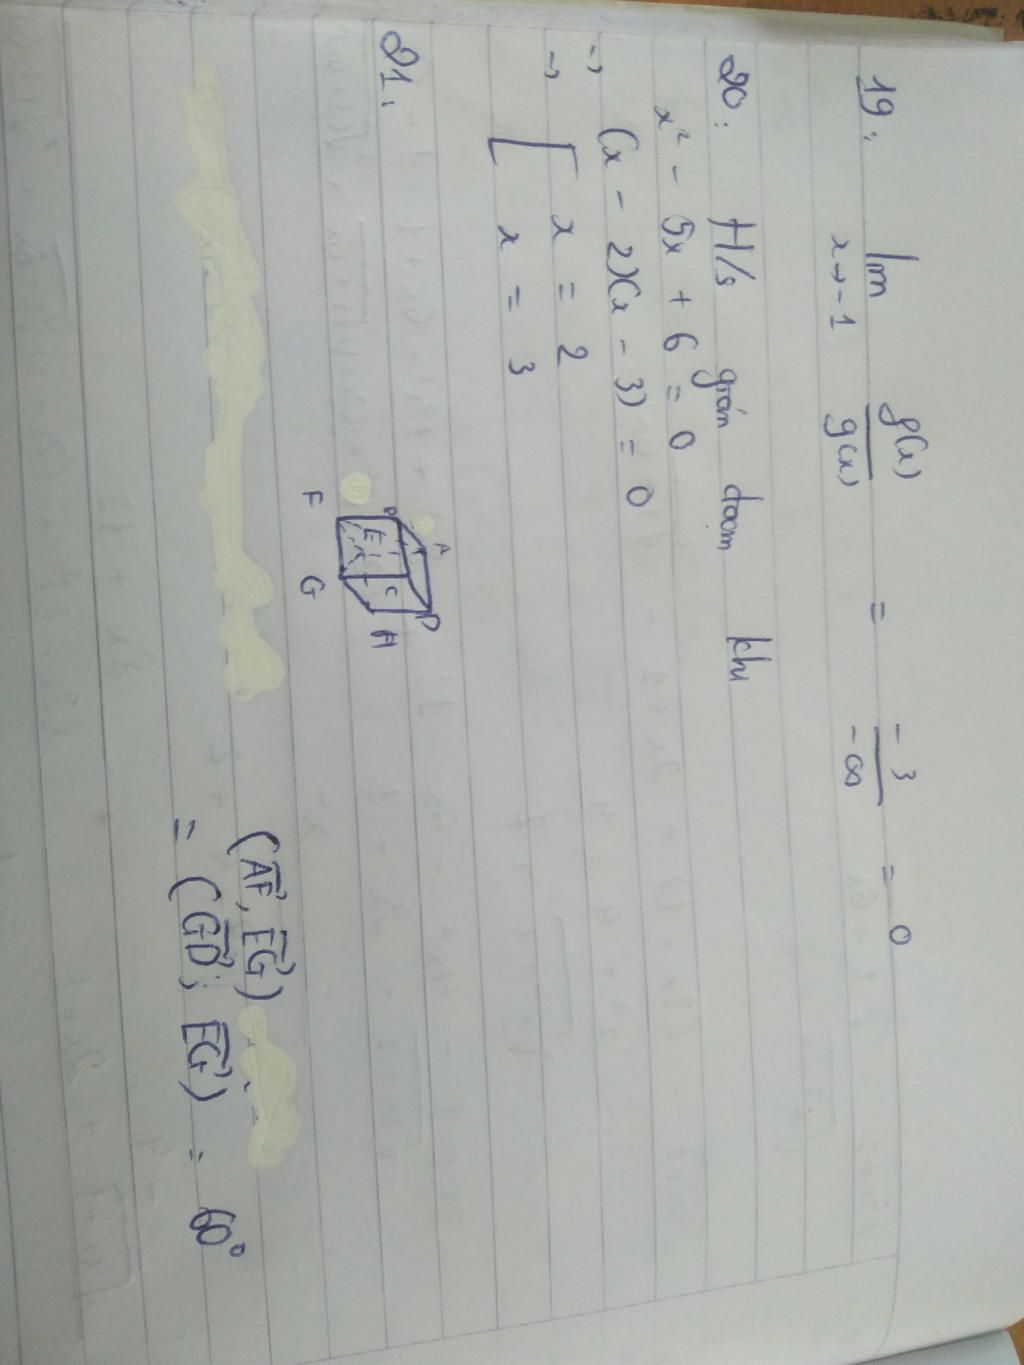 19:
lim f(x) = -3 = 0
x→-1 g(x) -∞
20: H/s gián đoạn khi
x² - 5x + 6 = 0
→ (x - 2)(x - 3) = 0
→ [ x = 2
x = 3
21:
A
B
D
E
C
F
G
H
(AF, EG)
= (GD; EG) = 60°